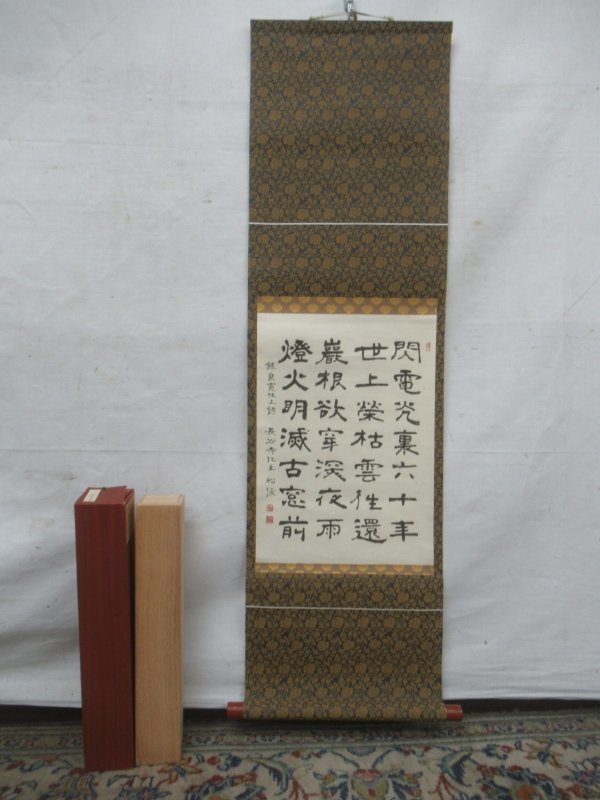 閃電光裏六十年
世上榮枯雲往還
巖根欲穿深夜雨
燈火明滅古窓前
録良寛上人詩